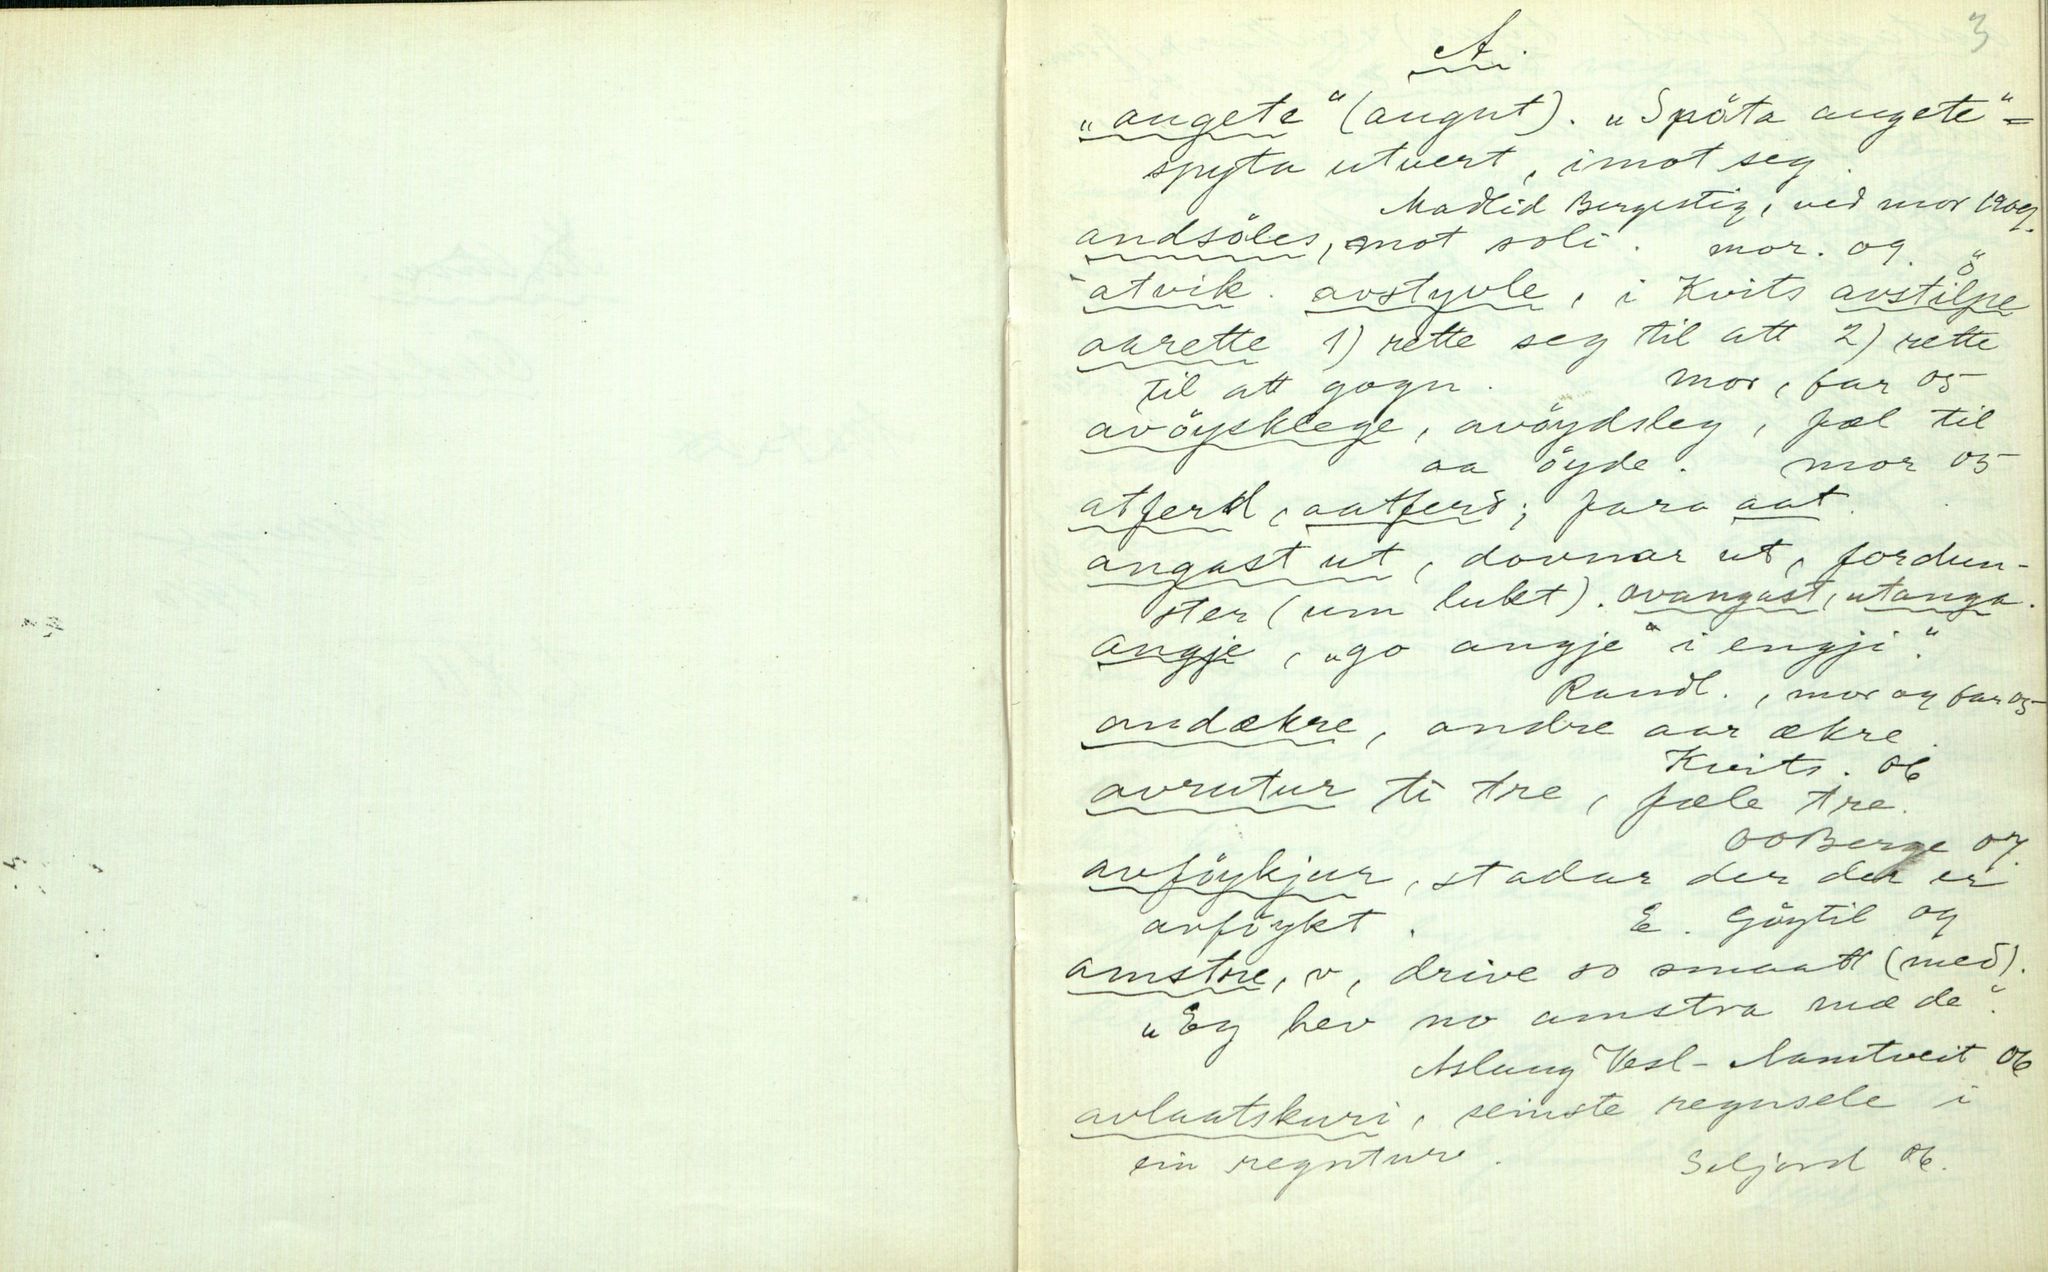 3
A.
„angete" (angnt). „Spöta angete" =
spyta utvert, imot seg.
Madlid Bergestig, ved mor 1909.
andsöles, mot soli. mor. 09. "
atvik. avstyvle, i Kvits avstilpe
avrette 1) rette seg til att 2) rette
til att gogn. mor, far 05
avöysklege, avöydsleg, fæl til
aa öyde. mor 05
atferd, aatferd; fara aat.
angast ut, dovnar ut, fordun-
ster (um lukt). avangast, utanga.
angje, „go angje" i engji".
Randl., mor og far 05
andækre, andre aar ækre.
Kvits. 06
avrutur ti tre, fæle tre.
OOBerge 07.
avföykjur, stadur der der er
avföykt. E. Göytil 09
amstre, v, drive so smaatt (med).
„Eg hev no amstra mæ de".
Aslaug Vesl-Namtveit 06
avlaatskuri, seinste regnsele i
ein regnture. Seljord 06.